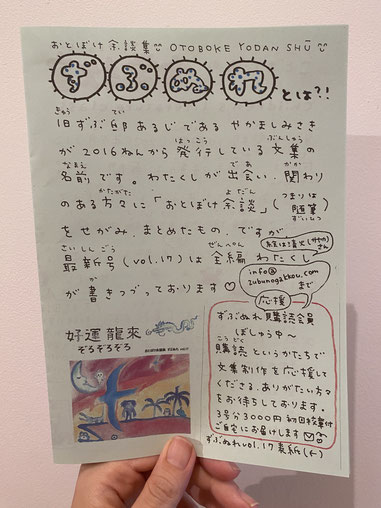 おとぼけ余談集 OTOBOKE YODAN SHŪ
ずぶぬれ とは?!
きゅう てい
旧ずぶ邸 あるじである やかましみさき
はっこう ぶんしゅう
が 2016ねんから 発行している 文集の
なまえ であ かか
名前です。わたくしが 出会い、関わり
かたがた よだん
のある方々に「おとぼけ余談」(つまりは 随筆)
ずいひつ
をせがみ、まとめたもの、ですが、
さいしんごう ぜんぺん
最新号 (vol.17) は 全編 わたくし
さん
が 書きつづっております♡
info@
zubunogakkou.com
まで
応援
ずぶぬれ 購読会員
ぼしゅう中〜
こうどく
購読 というかたちで
文集制作を応援して
くださる、ありがたい方々
をお待ちしております。
3号分3000円
ご自宅にお届けします
ずぶぬれvol.17 表紙(←)
好運龍來
ぞろぞろぞろ